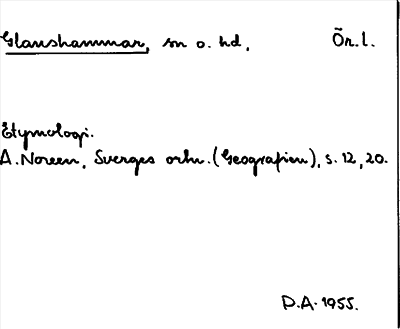 Glanshammar, sn o. hd, Ör. l.
Etymologi.
A. Noreen, Sverges ortn. (Geografien), s. 12, 20.
D.A. 1955.